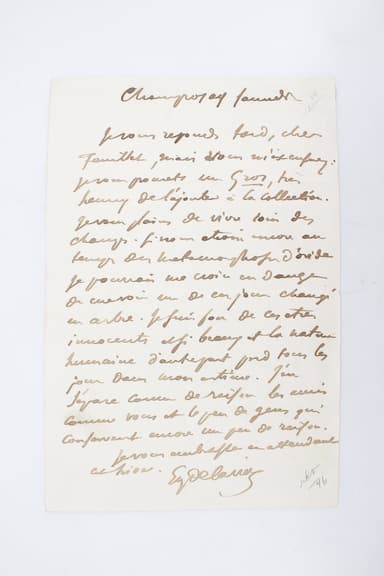 Champrosay samedi
Je vous réponds tard, cher
mais vous m'excuserez :
je vous promets un Gros, très
heureux de l'ajouter à la collection.
Je vous plains de vivre loin des
champs. Si nous étions encore au
temps des métamorphoses d'ovide
je pourrais me croire en danger
de me voir un de ces jours changé
en arbre. Je suis fou de ces êtres
innocents et si beaux et la nature
humaine d'autre part perd tous les
jours dans mon estime. J'en
sépare comme de raison les amis
comme vous et le peu de gens qui
conservent encore un peu de raison.
Je vous embrasse en attendant
cet hiver.
Eug Delacroix